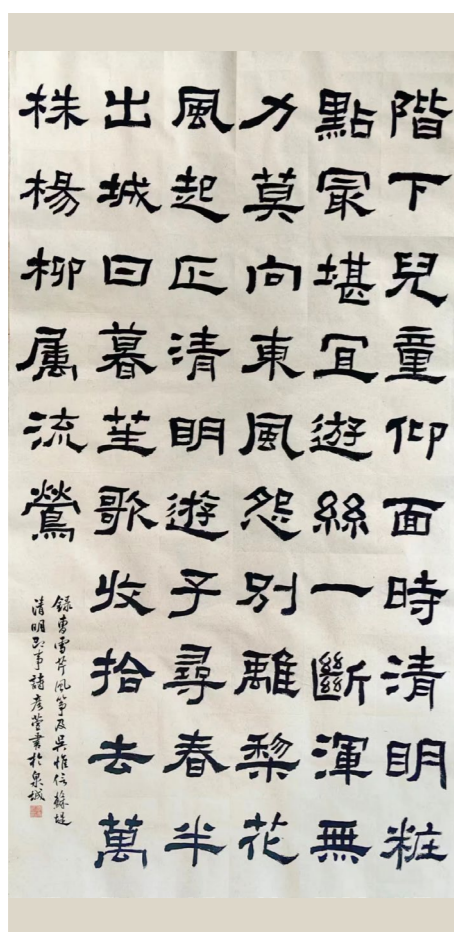 階下兒童仰面時清明粧
點冣堪宜遊絲一斷渾無
力莫向東風怨别離棃花
風起正清明遊子尋春半
出城日暮笙歌收拾去萬
株楊柳属流鶯
録曹雪芹風筝及吴惟信蘇堤
清明即事詩彦莹書於泉城